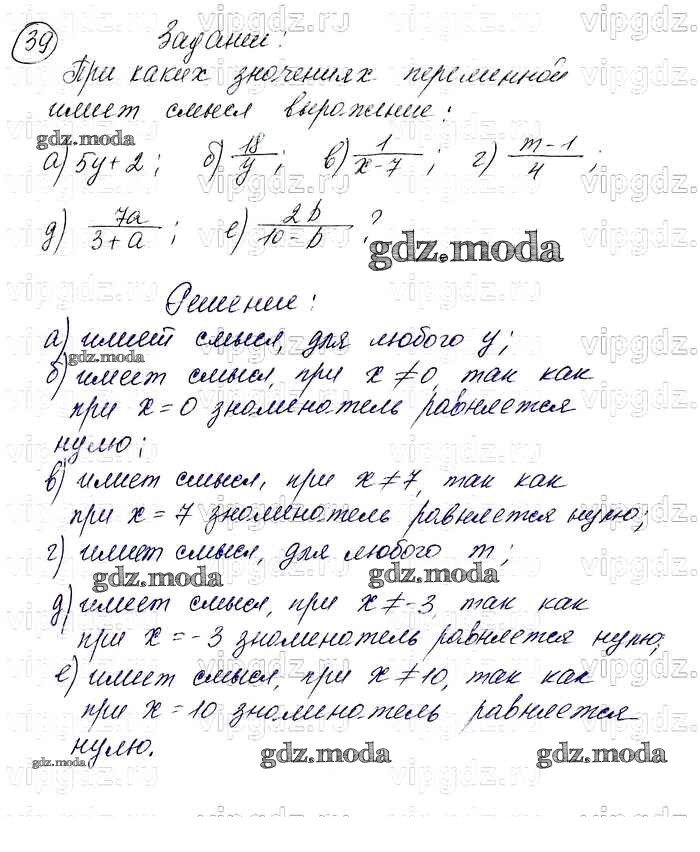 39
Задание:
При каких значениях переменной
имеет смысл выражение:
gdz.moda
а) 5y+2; б) 18/y; в) 1/(x-7); г) (m-1)/4;
д) 7a/(3+a); е) 2b/(10-b)?
gdz.moda
Решение:
а) имеет смысл, для любого y;
gdz.moda
б) имеет смысл, при x≠0, так как
при x=0 знаменатель равняется
нулю;
в) имеет смысл, при x≠7, так как
при x=7 знаменатель равняется нулю;
г) имеет смысл, для любого m;
gdz.moda gdz.moda
д) имеет смысл, при x≠-3, так как
при x=-3 знаменатель равняется нулю;
е) имеет смысл, при x≠10, так как
при x=10 знаменатель равняется
нулю.
gdz.moda gdz.moda gdz.moda
vipgdz.ru